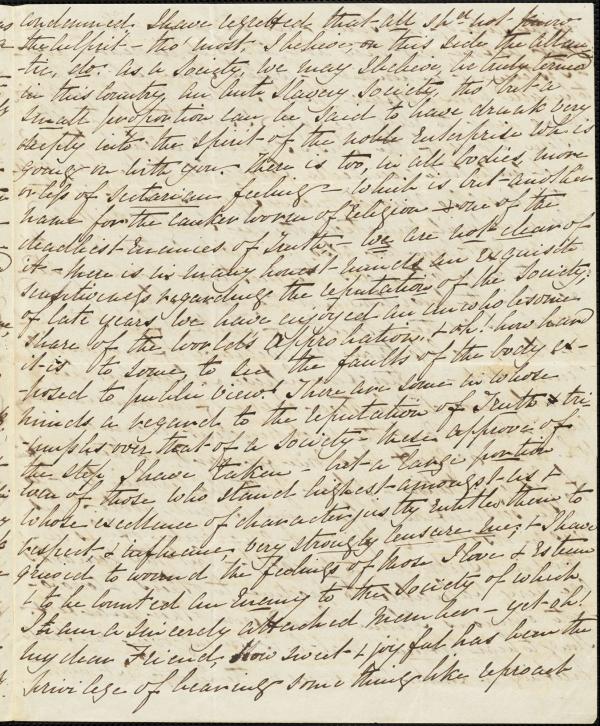 condemned. I have regretted that all shd not know
the culprit - tho' most, I believe, on this side the Atlan-
tic, do. as a Society we may I believe, be truly termed
in this Country an anti Slavery Society, tho' but a
small proportion can be said to have drunk very
deeply into the spirit of the noble enterprise wh. is
going on with you. there is too, in all bodies, more
or less of sectarian feeling - which is but another
name for the canker worm of religion & one of the
deadliest enemies of Truth - we are not clear of
it - there is in many honest minds an exquisite
sensitiveness regarding the reputation of the Society;
of late years we have enjoyed an unwholesome
share of the world's approbation, & oh! how hard
it is to some, to see the faults of the body ex-
posed to public view! There are some in whose
minds a regard to the reputation of Truth tri-
umphs over that of a Society - these approve of
the step I have taken - but a large portion
even of those who stand highest amongst us -
whose excellence of character justly entitles them to
respect & influence very strongly censure me; & I have
grieved to wound the feelings of those I love & esteem
& to be counted an Enemy to the Society of which
I am a sincerely attached member - yet oh!
my dear Friend, how sweet & joyful has been the
privilege of bearing something like reproach